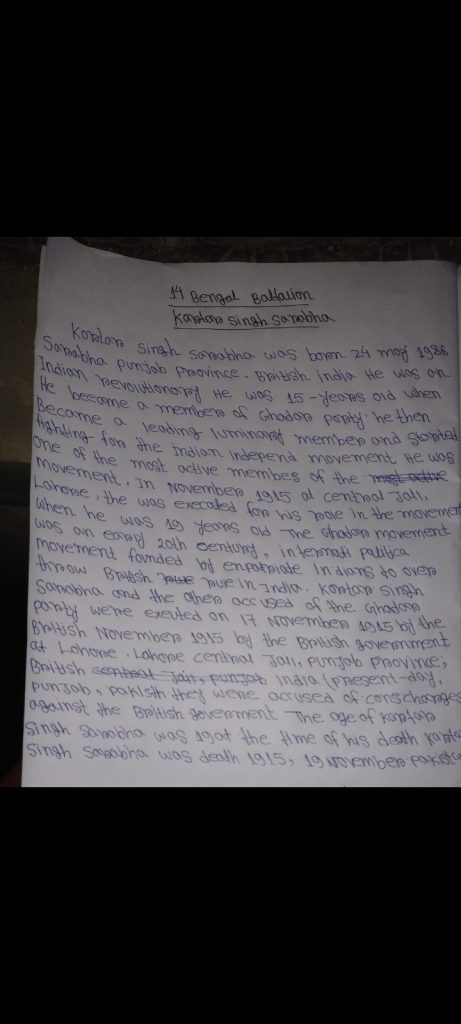 14 Bengal Battalion
Kartar singh sarabha
Kartar singh sarabha was born 24 may 1986
Sarabha punjab province. British india He was an
Indian revolutionary He was 15-years old when
He became a member of Ghadar party. he then
Became a leading luminary member and started
fighting for the indian independ movement. He was
one of the most active membes of the most active
movement. In November 1915 at central Jail,
Lahore, the was executed for his role in the movemen
when he was 19 years old The Ghadar movement
was an early 20th century, internati politica
movement founded by enpatriate Indians to over
throw British rule rule in India. Kartar singh
Sarabha and the others accused of the Ghadar
party were exeuted on 17 November 1915 by the
British November 1915 by the British government
at Lahore. Lahore central Jail, punjab province,
British central Jail, punjab India (present-day,
punjab, pakisth they were accused of conscharges
against the British goverment The age of kartar
singh sarabha was 19 at the time of his death Karta
singh sarabha was death 1915, 19 November pakista